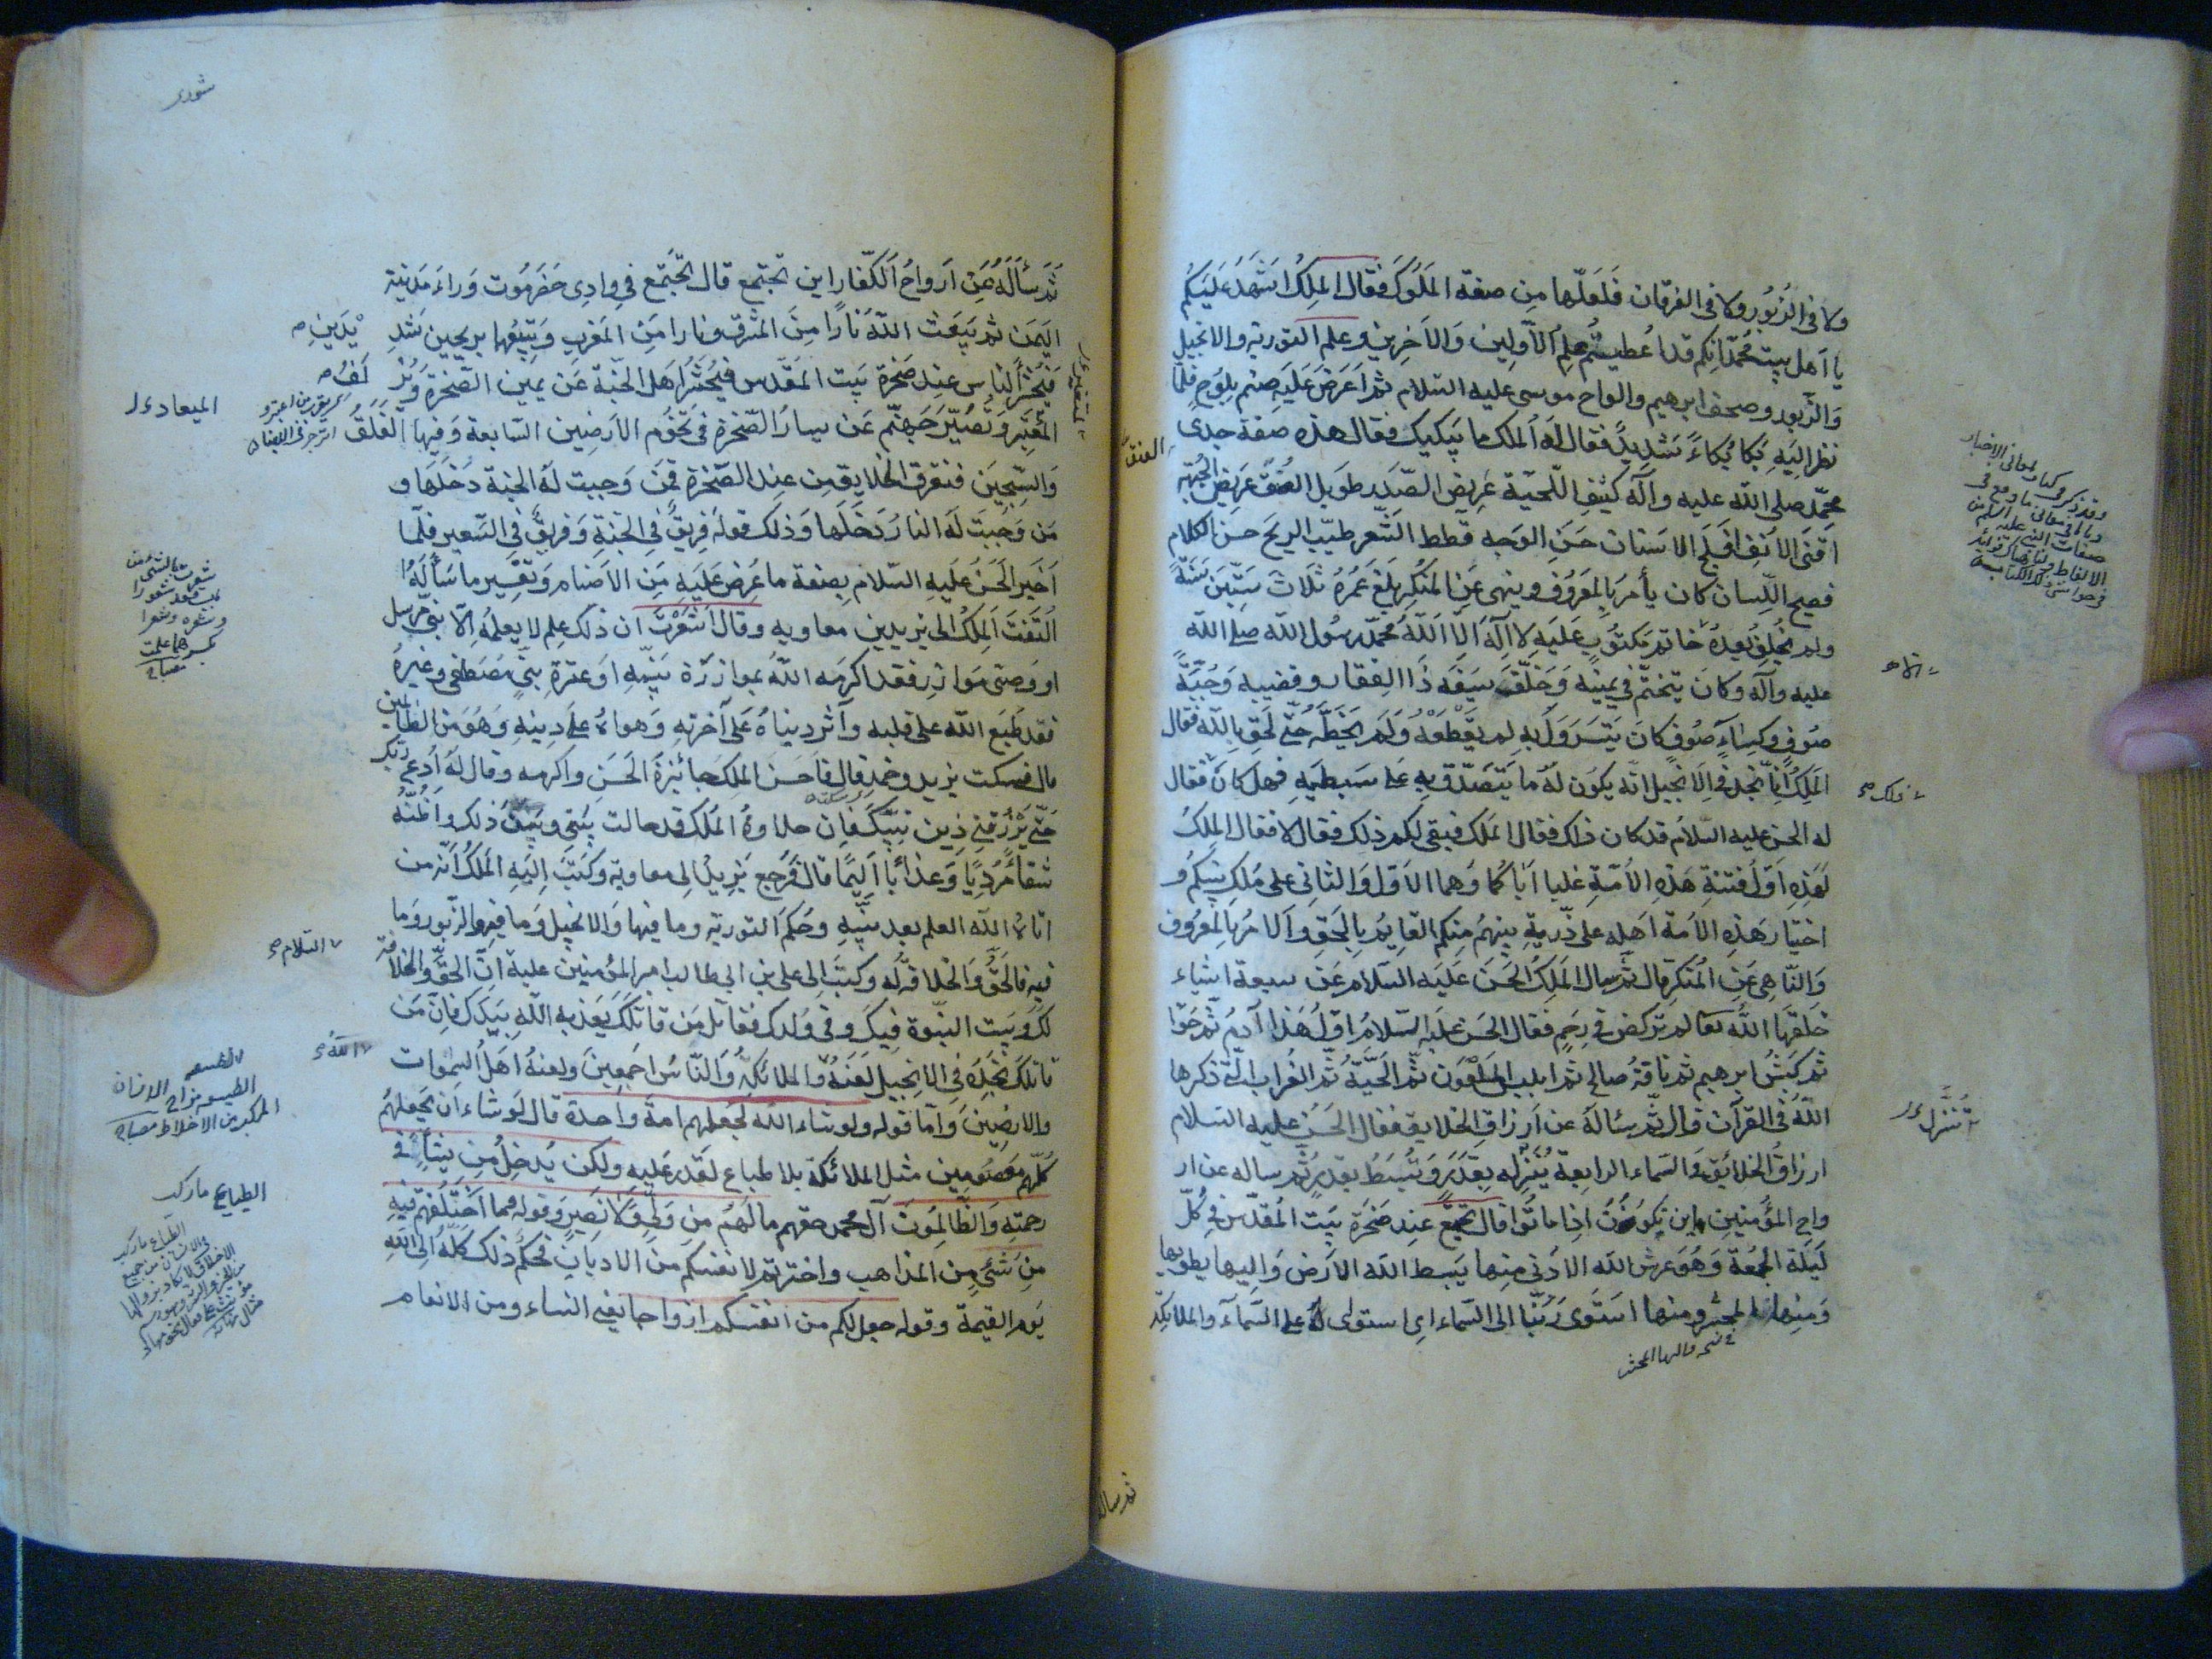 ولا فى الزبور ولا فى الفرقان فلعلّها من صفة الملوك فقال الملك اشهد عليكم
يا اهل بيت محمّد انكم قد اعطيتم علم الاولين والاخرين وعلم التورية والانجيل
والزّبور وصحف ابرهيم والواح موسى عليه السلام ثم اعرض عليه صنم بلوح فلمّا
نظر اليه بكا بكاءً شديدًا فقال له الملك ما يبكيك فقال هذه صفة جدى
محمّد صلى الله عليه وآله كثيف اللّحية عريض الصّدر طويل العنق عريض الجبهة
اقنى الانف افلج الاسنان حسن الوجه قطط الشّعر طيّب الريح حسن الكلام
فصيح اللّسان كان يأمر بالمعروف وينهى عن المنكر بلغ عمره ثلاث ستّين سنةً
ولم يخلف بعده خاتم مكتوب عليه لا اله الا الله محمّد رسول الله صلى الله
عليه وآله وكان يتختّم فى يمينه وخلّف سيفه ذا الفقار وقضيبه وجبّة
صوف وكساء صوف كان يتسرول به لم يقطعه ولم يخطه حتّى لحق بالله فقال
الملك انّا نجد فى الانجيل انّه يكون له ما يتصدّق به على سبطيه فهل كان فقال
له الحسن عليه السلام قد كان ذاك فقال الملك فبقى لكم ذلك فقال لا فقال الملك
لهذه اول فتنة هذه الامّة غلبا اباكما وهما الاول والثانى على ملك نبيّكم و
اختيار هذه الامة اهله على ذرّية نبيهم منكم القايم بالحق والامر بالمعروف
والنّاهى عن المنكر قال ثم سال الملك الحسن عليه السلام عن سبعة اشياء
خلقها الله تعالى لم تركض فى رحم فقال الحسن عليه السلام اول هذا آدم ثم حوّا
ثم كبش ابرهيم ثم ناقة صالح ثم ابليس الملعون ثمّ الحيّة ثمّ الغراب الّتى ذكرها
الله فى القرآن قال ثمّ سئاله عن ارزاق الخلايق فقال الحسن عليه السلام
ارزاق الخلائق فى السماء الرابعة ينزله بقدر ويبسط بقدر ثم ساله عن ار
واح المؤمنين اين يكون اذا ماتوا قال تجتمع عند صخرة بيت المقدّس فى كلّ
ليلة الجمعة وهو عرش الله الادنى منها يبسط الله الارض واليها يطويها
ومنها المحشر ومنها استوى ربّنا الى السماء اى استولى على السّماء والملائكة
ثم ساله
ثم سأله عن ارواح الكفار اين تجتمع قال تجتمع فى وادى حضرموت وراء مدينة
اليمن ثم يبعث الله نارا من المشرق ونارا من المغرب ويتبعها بريحين شد
فيحشر الناس عند صخرة بيت المقدس فيحشر اهل الجنّة عن يمين الصّخرة ويز
المتّقين وتصير جهنّم عن يسار الصّخرة فى تخوم الارضين السّابعة وفيها الفلق
والسّجين فتفرق الخلايق من عند الصّخرة فمن وجبت له الجنة دخلها و
من وجبت له النار دخلها وذلك قوله فريق فى الجنّة وفريق فى السّعير فلمّا
اخبر الحسن عليه السلام بصفة ما عرض عليه من الاصنام وتفسير ما سأله
التفت الملك الى يزيد بن معاويه وقال اشعرت ان ذلك علم لا يعلمه الا نبىّ مرسل
او وصىّ موازر قد اكرمه الله بموازرة نبيّه او عترة نبىّ مصطفى وغيره
فقد طبع الله على قلبه وآثر دنياه على آخرته وهواه على دينه وهو من الظّالمين
قال فسكت يزيد وخمد قال فاحسن الملك جائزة الحسن واكرمه وقال له ادع ربّك
حتّى يرزقنى دين نبيّك فان حلاوة الملك قد حالت بينى وبين ذلك واظنّه
شقاءً مرديًا وعذابًا اليمًا قال فرجع يزيد الى معاوية وكتب اليه الملك انّه من
اتاه الله العلم بعد نبيّه وحكم التورية وما فيها والانجيل وما فيه والزبور وما
فيه فالحقّ والخلافة له وكتب الى على بن ابى طالب امير المؤمنين عليه انّ الحقّ والخلافة
لك وبيت النبّوة فيك وفى ولدك فقاتل من قاتلك يعذبه الله بيدك فان من
قاتلك نجده فى الانجيل لعنه الله والملائكة والنّاس اجمعين ولعنه اهل السموات
والارضين وامّا قوله ولو شاء الله لجعلهم امة واحدة قال لو شاء ان يجعلهم
كلّهم معصومين مثل الملائكة بلا طباع لقدر عليه ولكن يدخل من يشاء فى
رحمته والظّالمون آل محمد حقهم ما لهم من ولىّ ولا نصير وقوله فما اختلفتم فيه
من شىء من المذاهب واخترتم لانفسكم من الاديان فحكم ذلك كلّه الى الله
يوم القيمة وقوله جعل لكم من انفسكم ازواجا يعنى النساء ومن الانعام